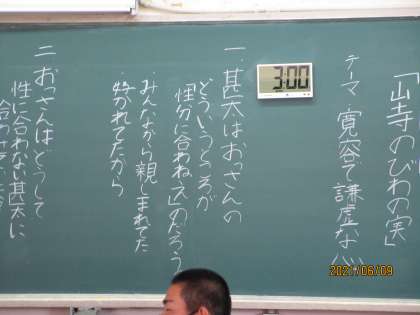 「山寺のびわの実」
テーマ 寛容で謙虚な心
3:00
一.甚太はおっさんの
どういうところが
「性分に合わねえ」のだろう
・みんなから親しまれてた
・好かれてたから
二 おっさんはどうして
性に合わない甚太に
2021/06/09